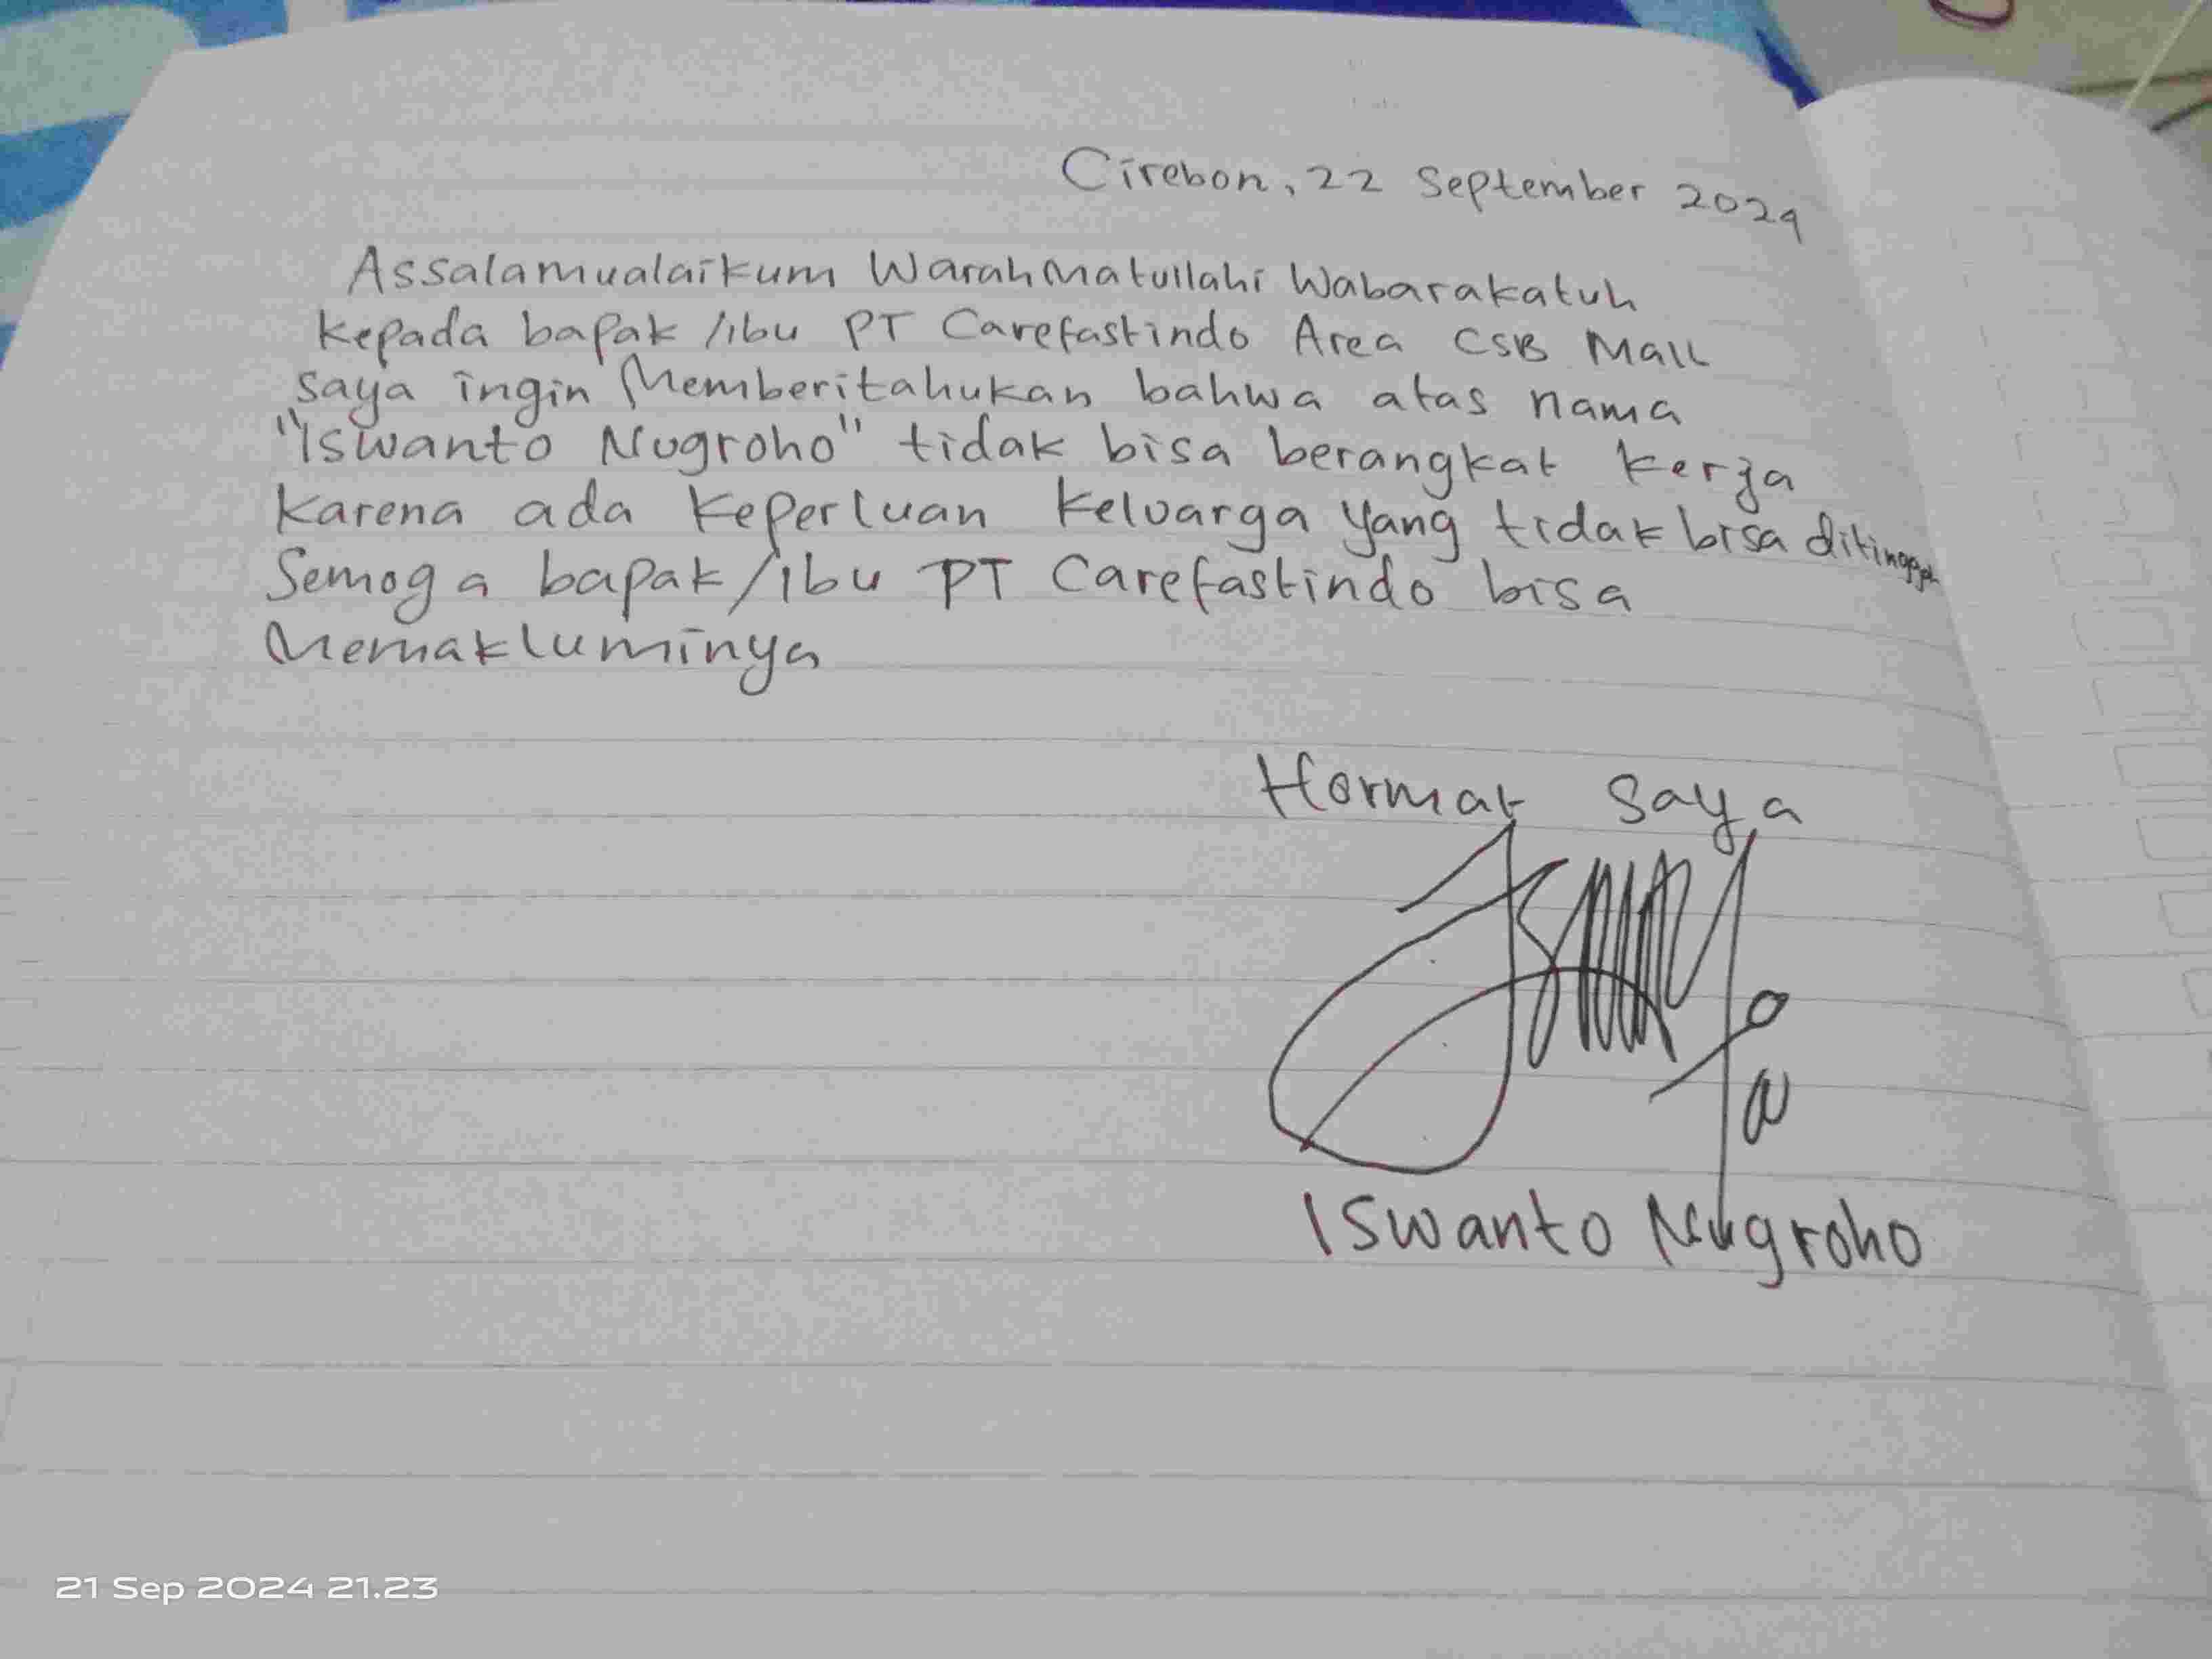 Cirebon, 22 September 2024
Assalamualaikum Warahmatullahi Wabarakatuh
kepada bapak /ibu PT Carefastindo Area CSB Mall
saya ingin Memberitahukan bahwa atas nama
"Iswanto Nugroho" tidak bisa berangkat kerja
karena ada keperluan keluarga yang tidak bisa ditinggal
Semoga bapak/ibu PT Carefastindo bisa
Memakluminya
Hormat saya
Iswanto Nugroho
21 Sep 2024 21.23